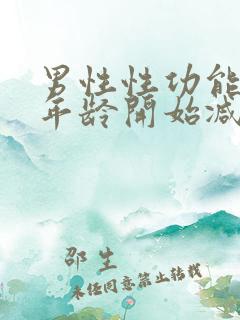 男性性功能
年龄开始减
邵生
未经同意禁止转载